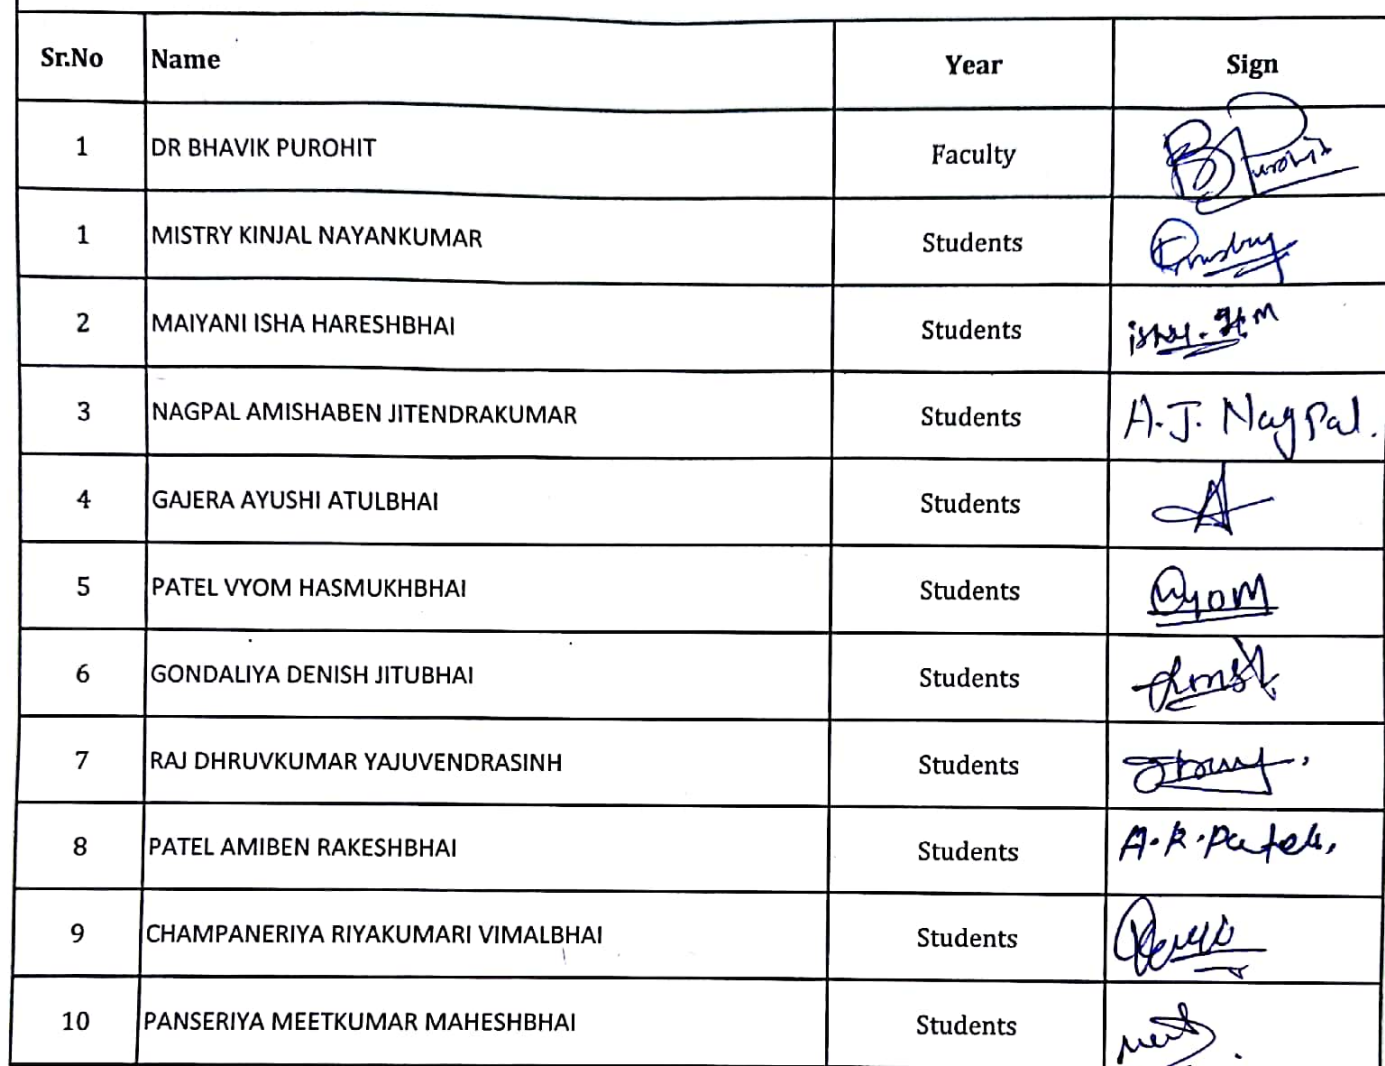 Sr.No Name Year Sign
1 DR BHAVIK PUROHIT Faculty B Purohit
1 MISTRY KINJAL NAYANKUMAR Students
2 MAIYANI ISHA HARESHBHAI Students isha. H M
3 NAGPAL AMISHABEN JITENDRAKUMAR Students A.J. Nagpal.
4 GAJERA AYUSHI ATULBHAI Students A
5 PATEL VYOM HASMUKHBHAI Students Vyom
6 GONDALIYA DENISH JITUBHAI Students
7 RAJ DHRUVKUMAR YAJUVENDRASINH Students
8 PATEL AMIBEN RAKESHBHAI Students A.R.Patel.
9 CHAMPANERIYA RIYAKUMARI VIMALBHAI Students
10 PANSERIYA MEETKUMAR MAHESHBHAI Students Meet